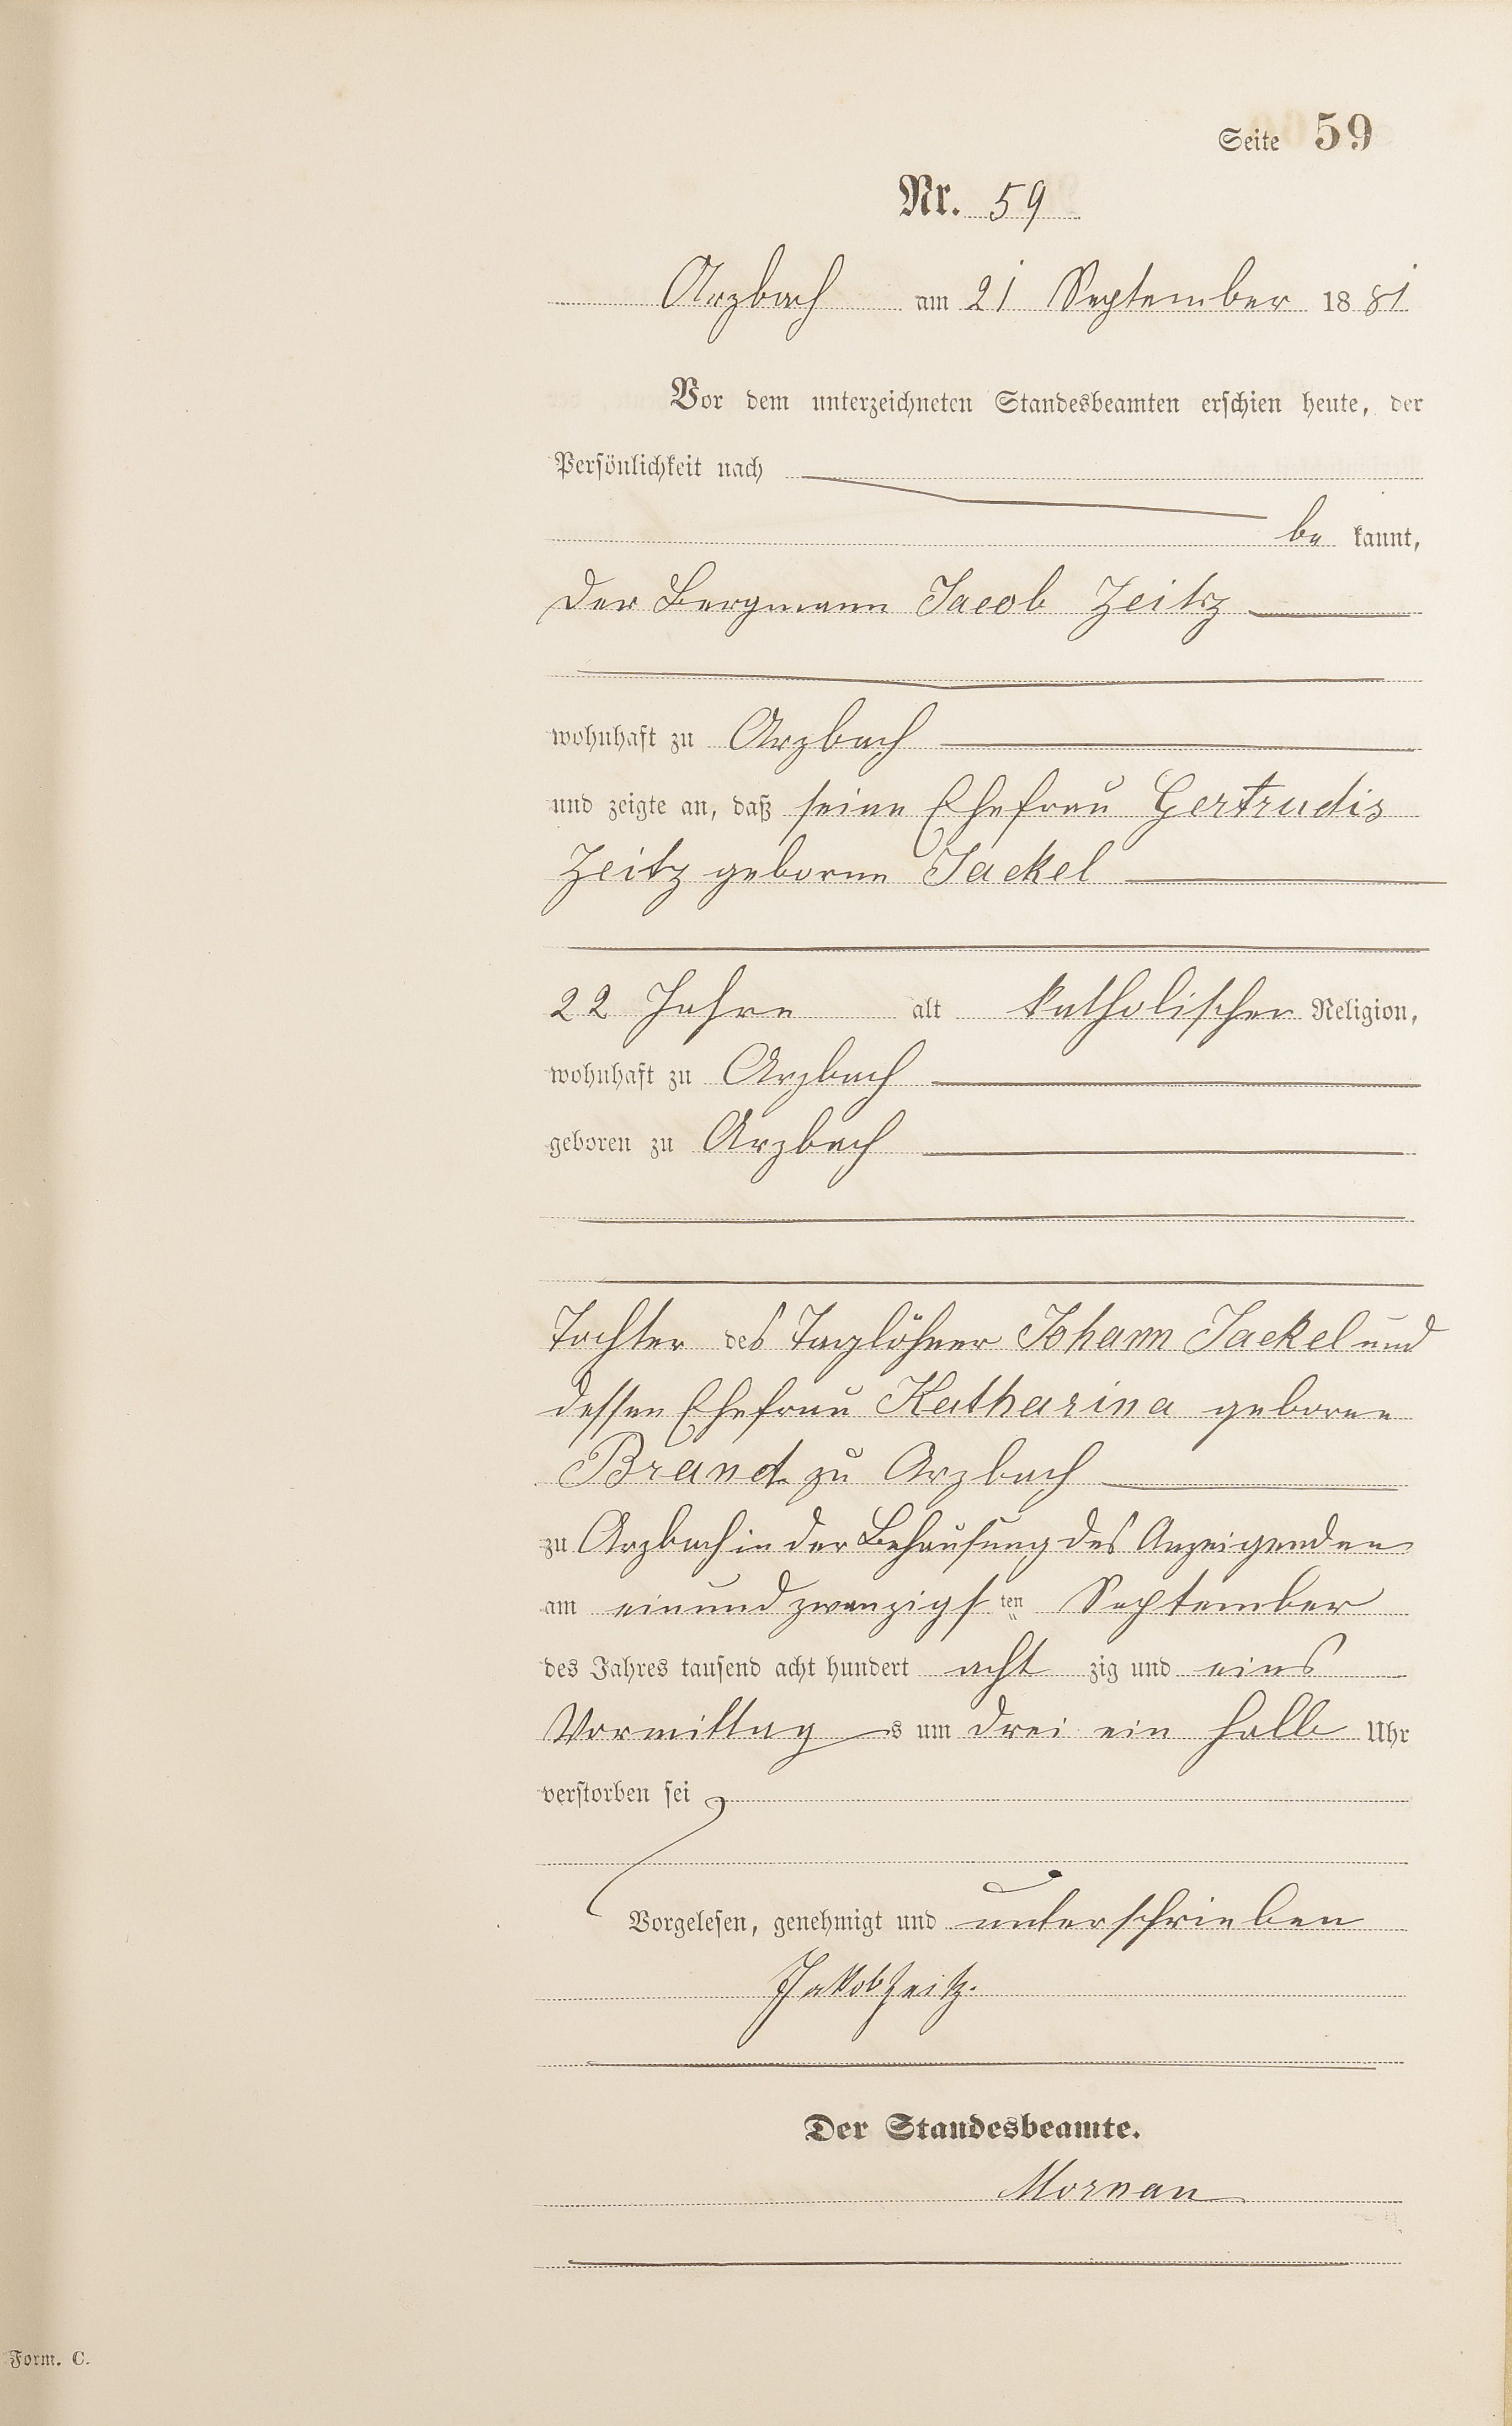 Seite 59
Nr. 59
Arzbach am 21 September 1881
Vor dem unterzeichneten Standesbeamten erschien heute, der
Persönlichkeit nach
be kannt,
der Bergmann Jacob Zeitz
wohnhaft zu Arzbach
und zeigte an, daß seine Ehefrau Gertrudis
Zeitz geborne Jackel
22 Jahre alt katholischer Religion,
wohnhaft zu Arzbach
geboren zu Arzbach
Tochter des Taglöhner Johann Jackel und
dessen Ehefrau Katharina geborne
Brand zu Arzbach
zu Arzbach in der Behausung des Anzeigenden
am einundzwanzigsten September
des Jahres tausend acht hundert acht zig und eins
Vormittags um drei ein halb Uhr
verstorben sei
Vorgelesen, genehmigt und unterschrieben
Jakob Zeitz.
Der Standesbeamte.
Form. C.